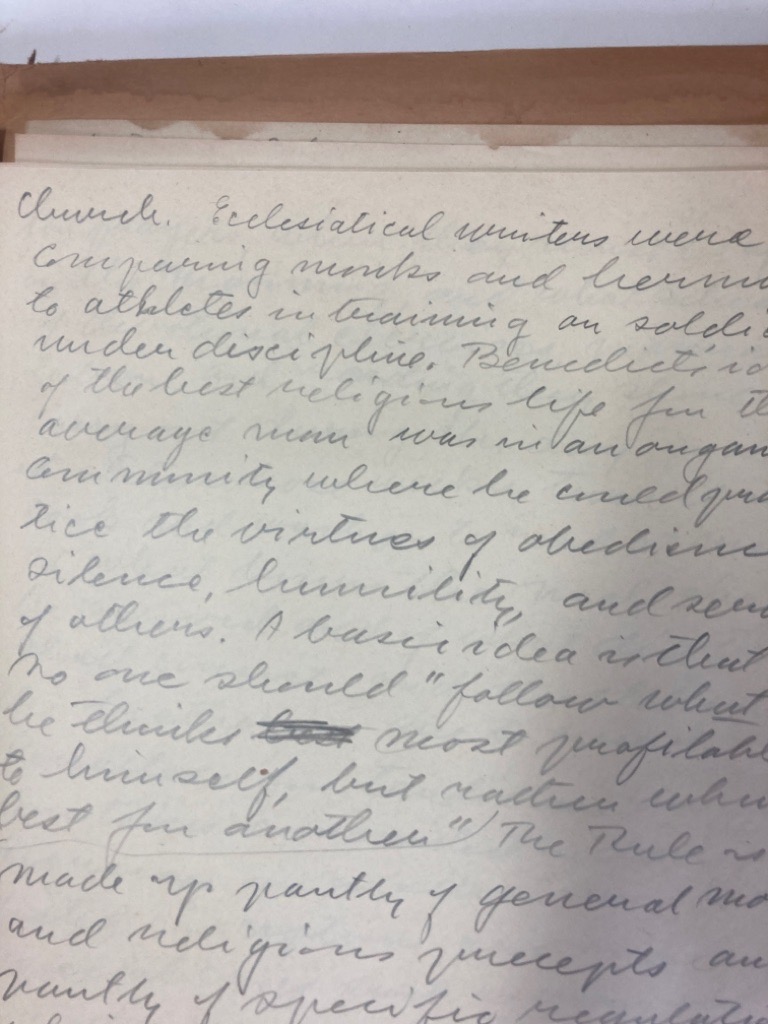 Church. Ecclesiatical writers were
Comparing monks and herm
to athletes in training or soldi
under discipline. Benedict's id
of the best religious life for th
average man was in an organ
Community where he could prac
tice the virtues of obedienc
silence, humility, and serv
of others. A basic idea is that
no one should "follow what
he thinks best most profitabl
to himself, but rather wha
best for another" The Rule is
made up partly of general mo
and religious precepts an
partly of specific regulati